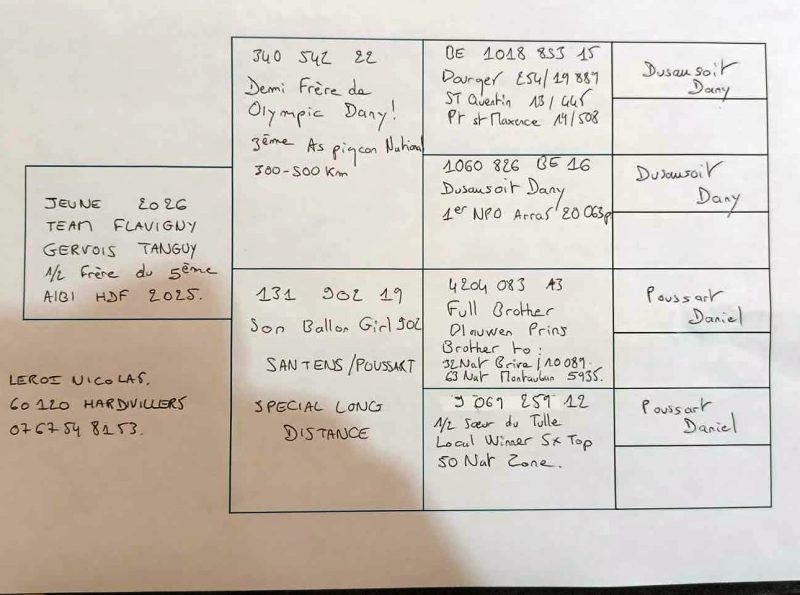 JEUNE 2026
TEAM FLAVIGNY
GERVOIS TANGUY
1/2 Frère du 5ème
AIBI HDF 2025.
LEROI NICOLAS.
60 120 HARDIVILLERS
07 67 54 81 53.
340 542 22
Demi Frère de
Olympic Dany!
3ème As pigeon National
300-500 Km
131 902 19
Son Ballon Girl 902
SANTENS/POUSSART
SPECIAL LONG
DISTANCE
BE 1018 853 15
Dourger 254/19 889
ST Quentin 13/445
Pt st Maxence 14/508
1060 826 BE 16
Dusausoit Dany
1er NPO Arras 20 063p
4204 083 A3
Full Brother
Olauwen Prins
Brother to:
32 Nat Brive / 10 089.
63 Nat Montauban 5935.
9 061 259 12
1/2 Sœur du Tulle
Local Winner 5x Top
50 Nat Zone.
Dusausoit
Dany
Dusausoit
Dany
Poussart
Daniel
Poussart
Daniel